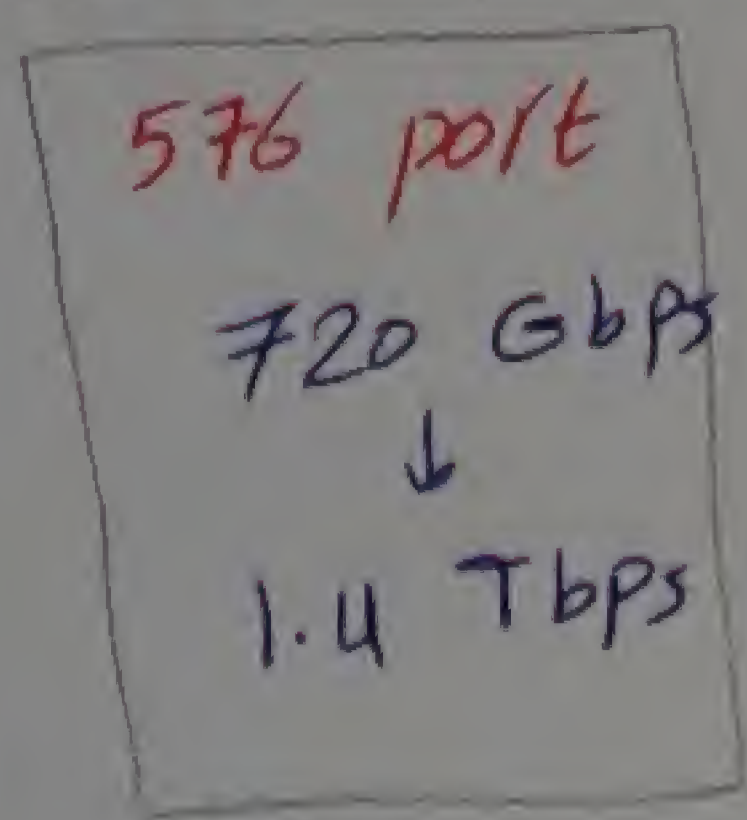 576 port
720 Gbps
↓
1.4 Tbps